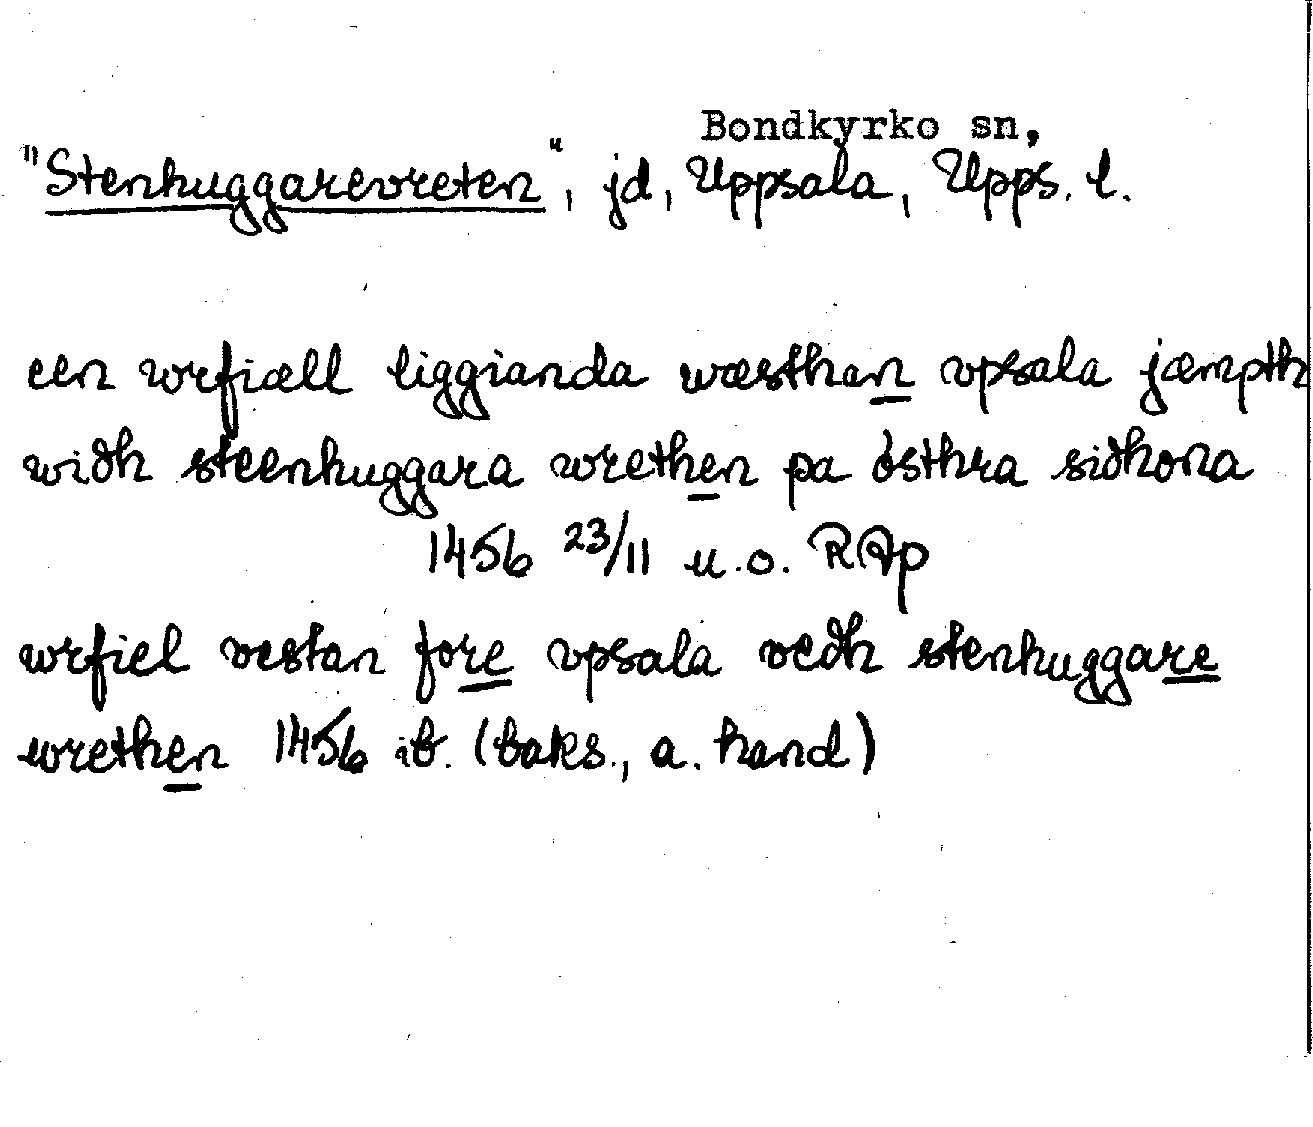 Bondkyrko sn,
"Stenhuggarevreten", jd, Uppsala, Upps. l.
een wrfiæll liggianda wæsthan vpsala jæmpth
widh steenhuggara wrethen pa østhra sidhona
1456 23/11 u.o. RAp
wrfiel vestan fore vpsala vedh stenhuggare
wrethen 1456 ib. (baks., a. hand)